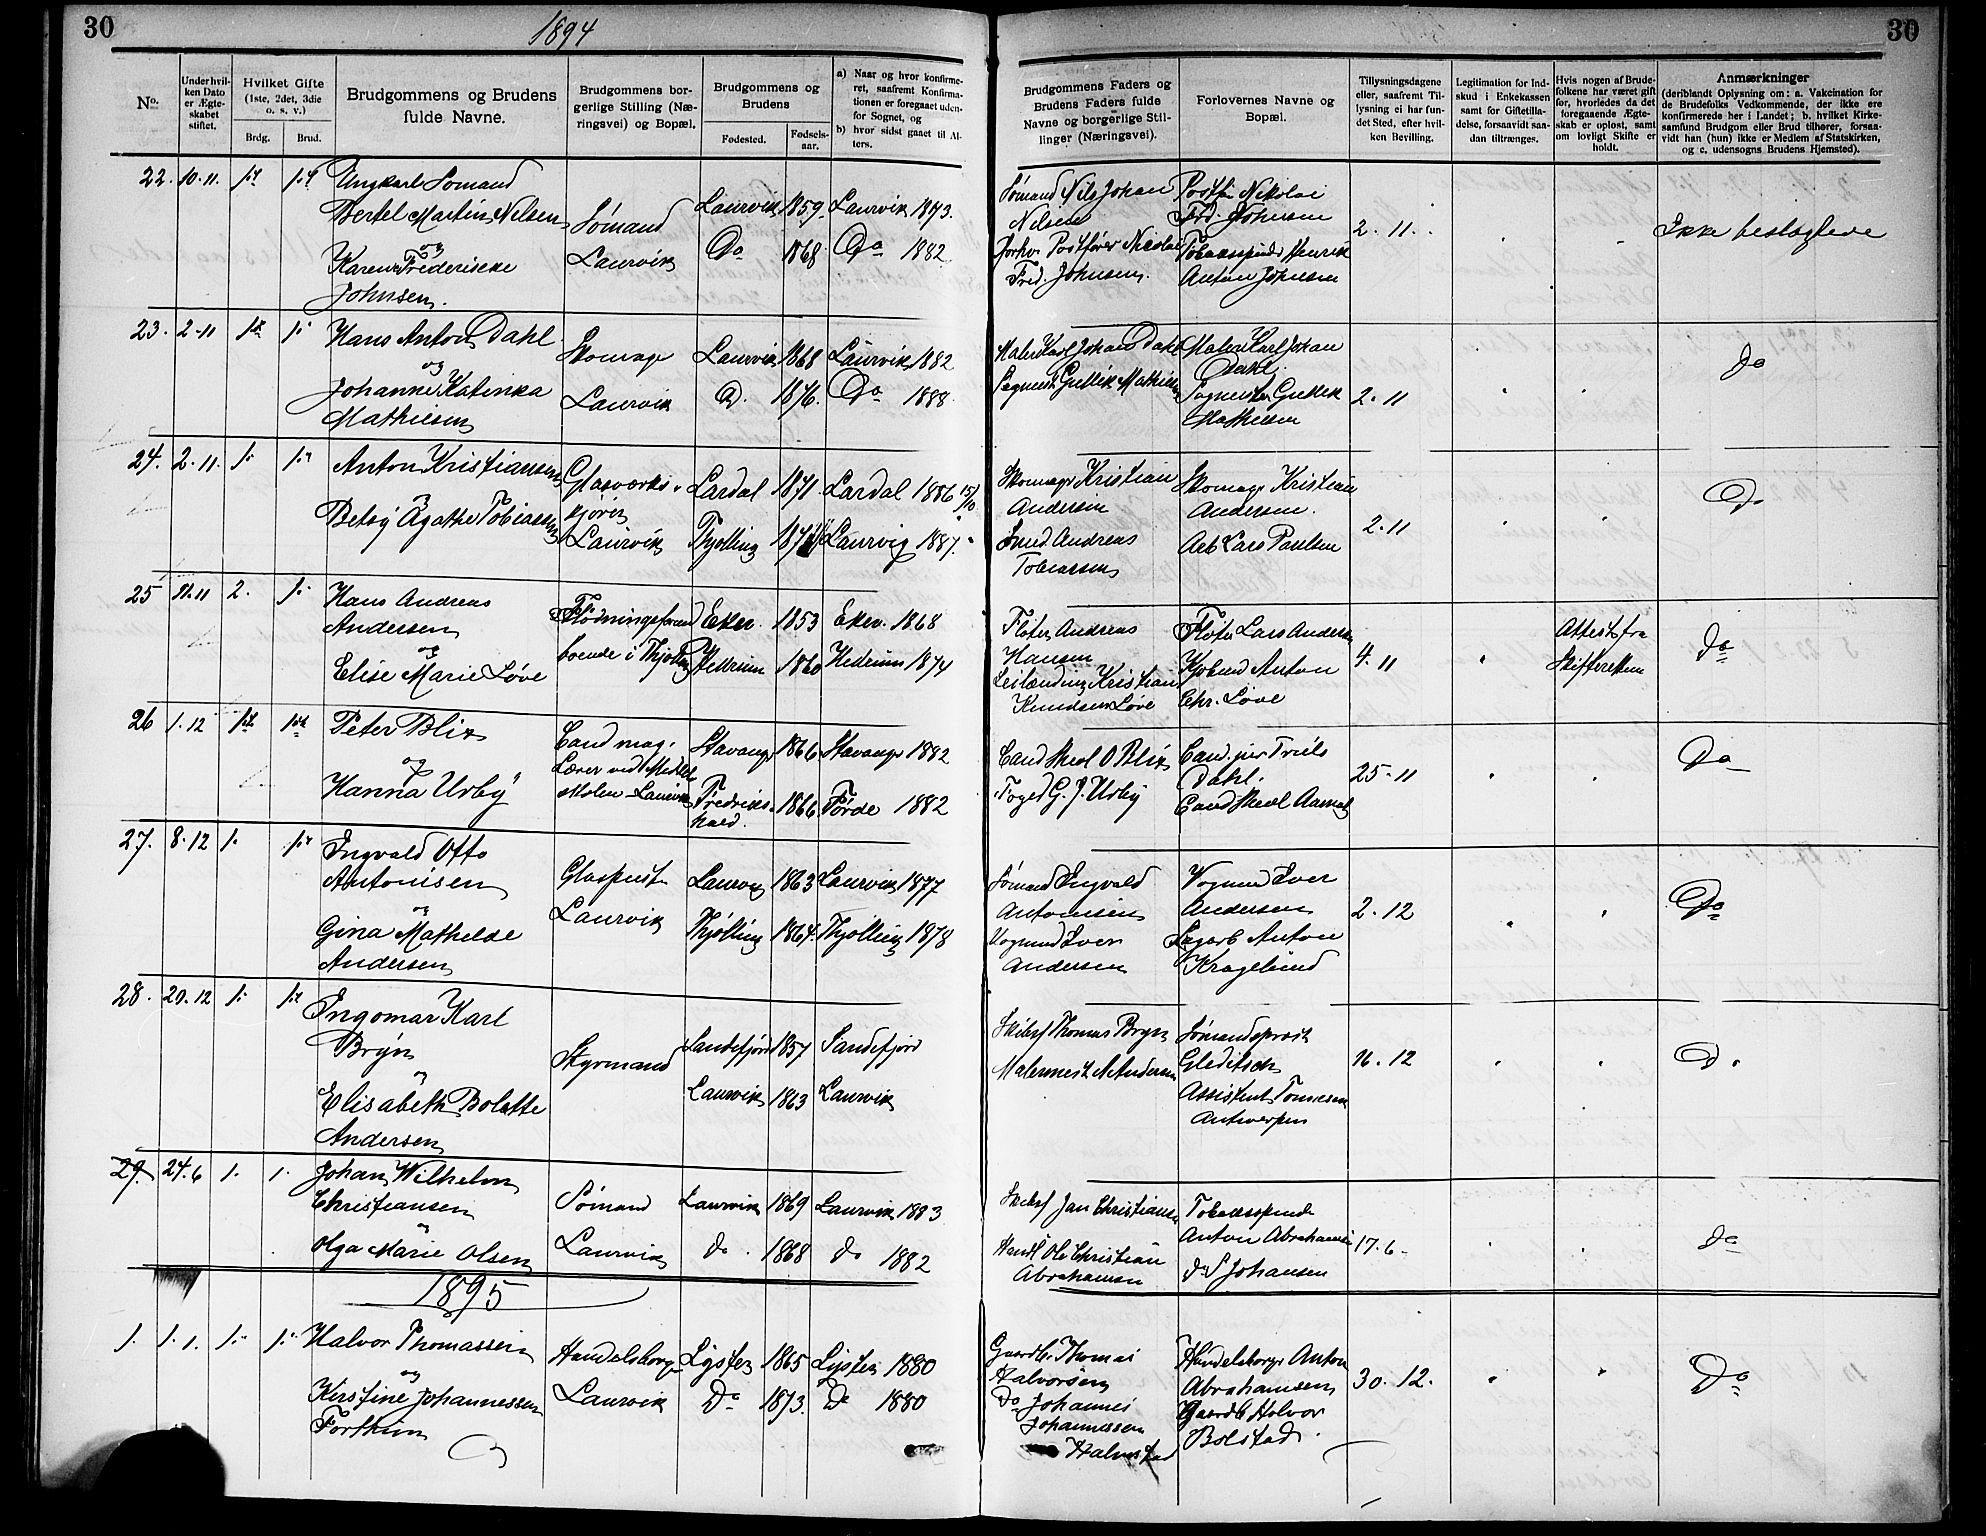 30
1894
30
No.
Under hvilken Dato er Ægteskabet stiftet.
Hvilket Gifte (1ste, 2det, 3die o. s. v.)
Brdg.
Brud.
Brudgommens og Brudens fulde Navne.
Brudgommens borgerlige Stilling (Næringsvei) og Bopæl.
Brudgommens og Brudens
Fødested.
Fødselsaar.
a) Naar og hvor konfirmeret, saafremt Konfirmationen er foregaaet udenfor Sognet, og
b) hvor sidst gaaet til Alters.
Brudgommens Faders og Brudens Faders fulde Navne og borgerlige Stillinger (Næringsvei).
Forlovernes Navne og Bopæl.
Tillysningsdagene eller, saafremt Tillysning ei har fundet Sted, efter hvilken Bevilling.
Legitimation for Indskud i Enkekassen samt for Giftetilladelse, forsaavidt saadan tiltrænges.
Hvis nogen af Brudefolkene har været gift før, hvorledes da det foregaaende Ægteskab er opløst, samt om lovligt Skifte er holdt.
Anmærkninger
(deriblandt Oplysning om: a. Vakcination for de Brudefolks Vedkommende, der ikke ere konfirmerede her i Landet; b. hvilket Kirkesamfund Brudgom eller Brud tilhører, forsaavidt han (hun) ikke er Medlem af Statskirken, og c. udensogns Brudens Hjemsted).
22. 10.11. Ungkarl Sømand
Bertel Martin Nilsen
og
Karen Frederikke
Johnsen.
Sømand
Laurvik
Laurvik 1859. Laurvik 1873.
Do 1868 Do 1882
Sømand Nils Johan
Nilsen
Postfører Nicolai
Fred. Johnsen.
Nikolai
Frd. Johnsen
Henrik
Anton Johnsen
2. 11.
Ikke beslægtede
23. 2-11 Hans Anton Dahl
og
Johanne Katinka
Mathisen
Skomager
Laurvik
Laurvik 1868 Laurvik 1882
D. 1876. Do 1888.
Maler Karl Johan Dahl
Gullik Mathisen
Maler Karl Johan
Dahl.
Gullik
Mathisen
2. 11
do
24. 2.11. Anton Kristiansen
Betsy Agathe Tobiassen
Glasværks
kjører
Laurvik
Lardal 1871 Lardal 1886 15/10
Thjølling Laurvig 1887.
Skomager Kristian
Andersen
Smed Andreas
Tobiassen
Skomager Kristian
Andersen.
Arb Lars Paulsen
2. 11
Do
25 11.11 2. Hans Andreas
Andersen
og
Elise Marie Løve
Flødningsformand
boende i Thjølling
Eker. 1853 Eker. 1868
Hedrum 1860 Hedrum 1874
Fløter Andreas
Hansen
Leilænding Kristian
Knudsen Løve
Fløter Lars Andersen
Anton
Chr. Løve
4. 11
Attest fra
Skifteretten
do
26 1.12 Peter Blix
og
Hanna Urby
Cand mag.
Lærer ved Middel
skolen - Laurvik
Stavanger 1866 Stavanger 1882
Fredriks-
hald. 1866 Førde 1882
Cand theol O Blix
Foged G. J. Urby
Cand. jur Troels
Dahl.
Cand theol
25-11
Do
27. 8.12 1. Ingvald Otto
Antonisen
og
Gina Mathilde
Andersen
Glaspust
Laurvik
Laurvig 1863 Laurvik 1877
Thjølling 1864. Thjølling 1878
Sømand Ingvald
Antonisen
Vognmd Iver
Andersen
Vognmd Iver
Andersen
Anton
Kragelund
2. 12
Do
28. 20.12 Ingomar Karl
Bryn
og
Elisabeth Bolette
Andersen
Styrmand
Sandefjord 1857 Sandefjord
Laurvik 1863 Laurvik
Skibsf Thomas Bryn
Malermest Andersen
Sømandsprest
Gleditsch
Assistent
Antwerpen
16. 12
D.
29. 24.6 1. 1. Johan Wilhelm
Christiansen
og
Olga Marie Olsen
Sømand
Laurvik
Laurvik 1869 Laurvik 1883
do. 1868 do 1882
Skibsf Jan Christiansen
Ole Christian
Abrahamsen
Tobakspinder
Anton Abrahamsen
S Johansen
17.6-
do
1895
1. 1.1. Halvor Thomassen
og
Kirstine Johannessen
Forthun
Handelsborger
Laurvik
Lyster 1865 Lyster 1880
Do 1873. Do 1880
Gaardbr. Thomas
Halvorsen
Do Johannes
Johannessen
Handelsborger Anton
Abrahamsen
Gaardbr Halvor
Bolstad.
30. 12.
Do